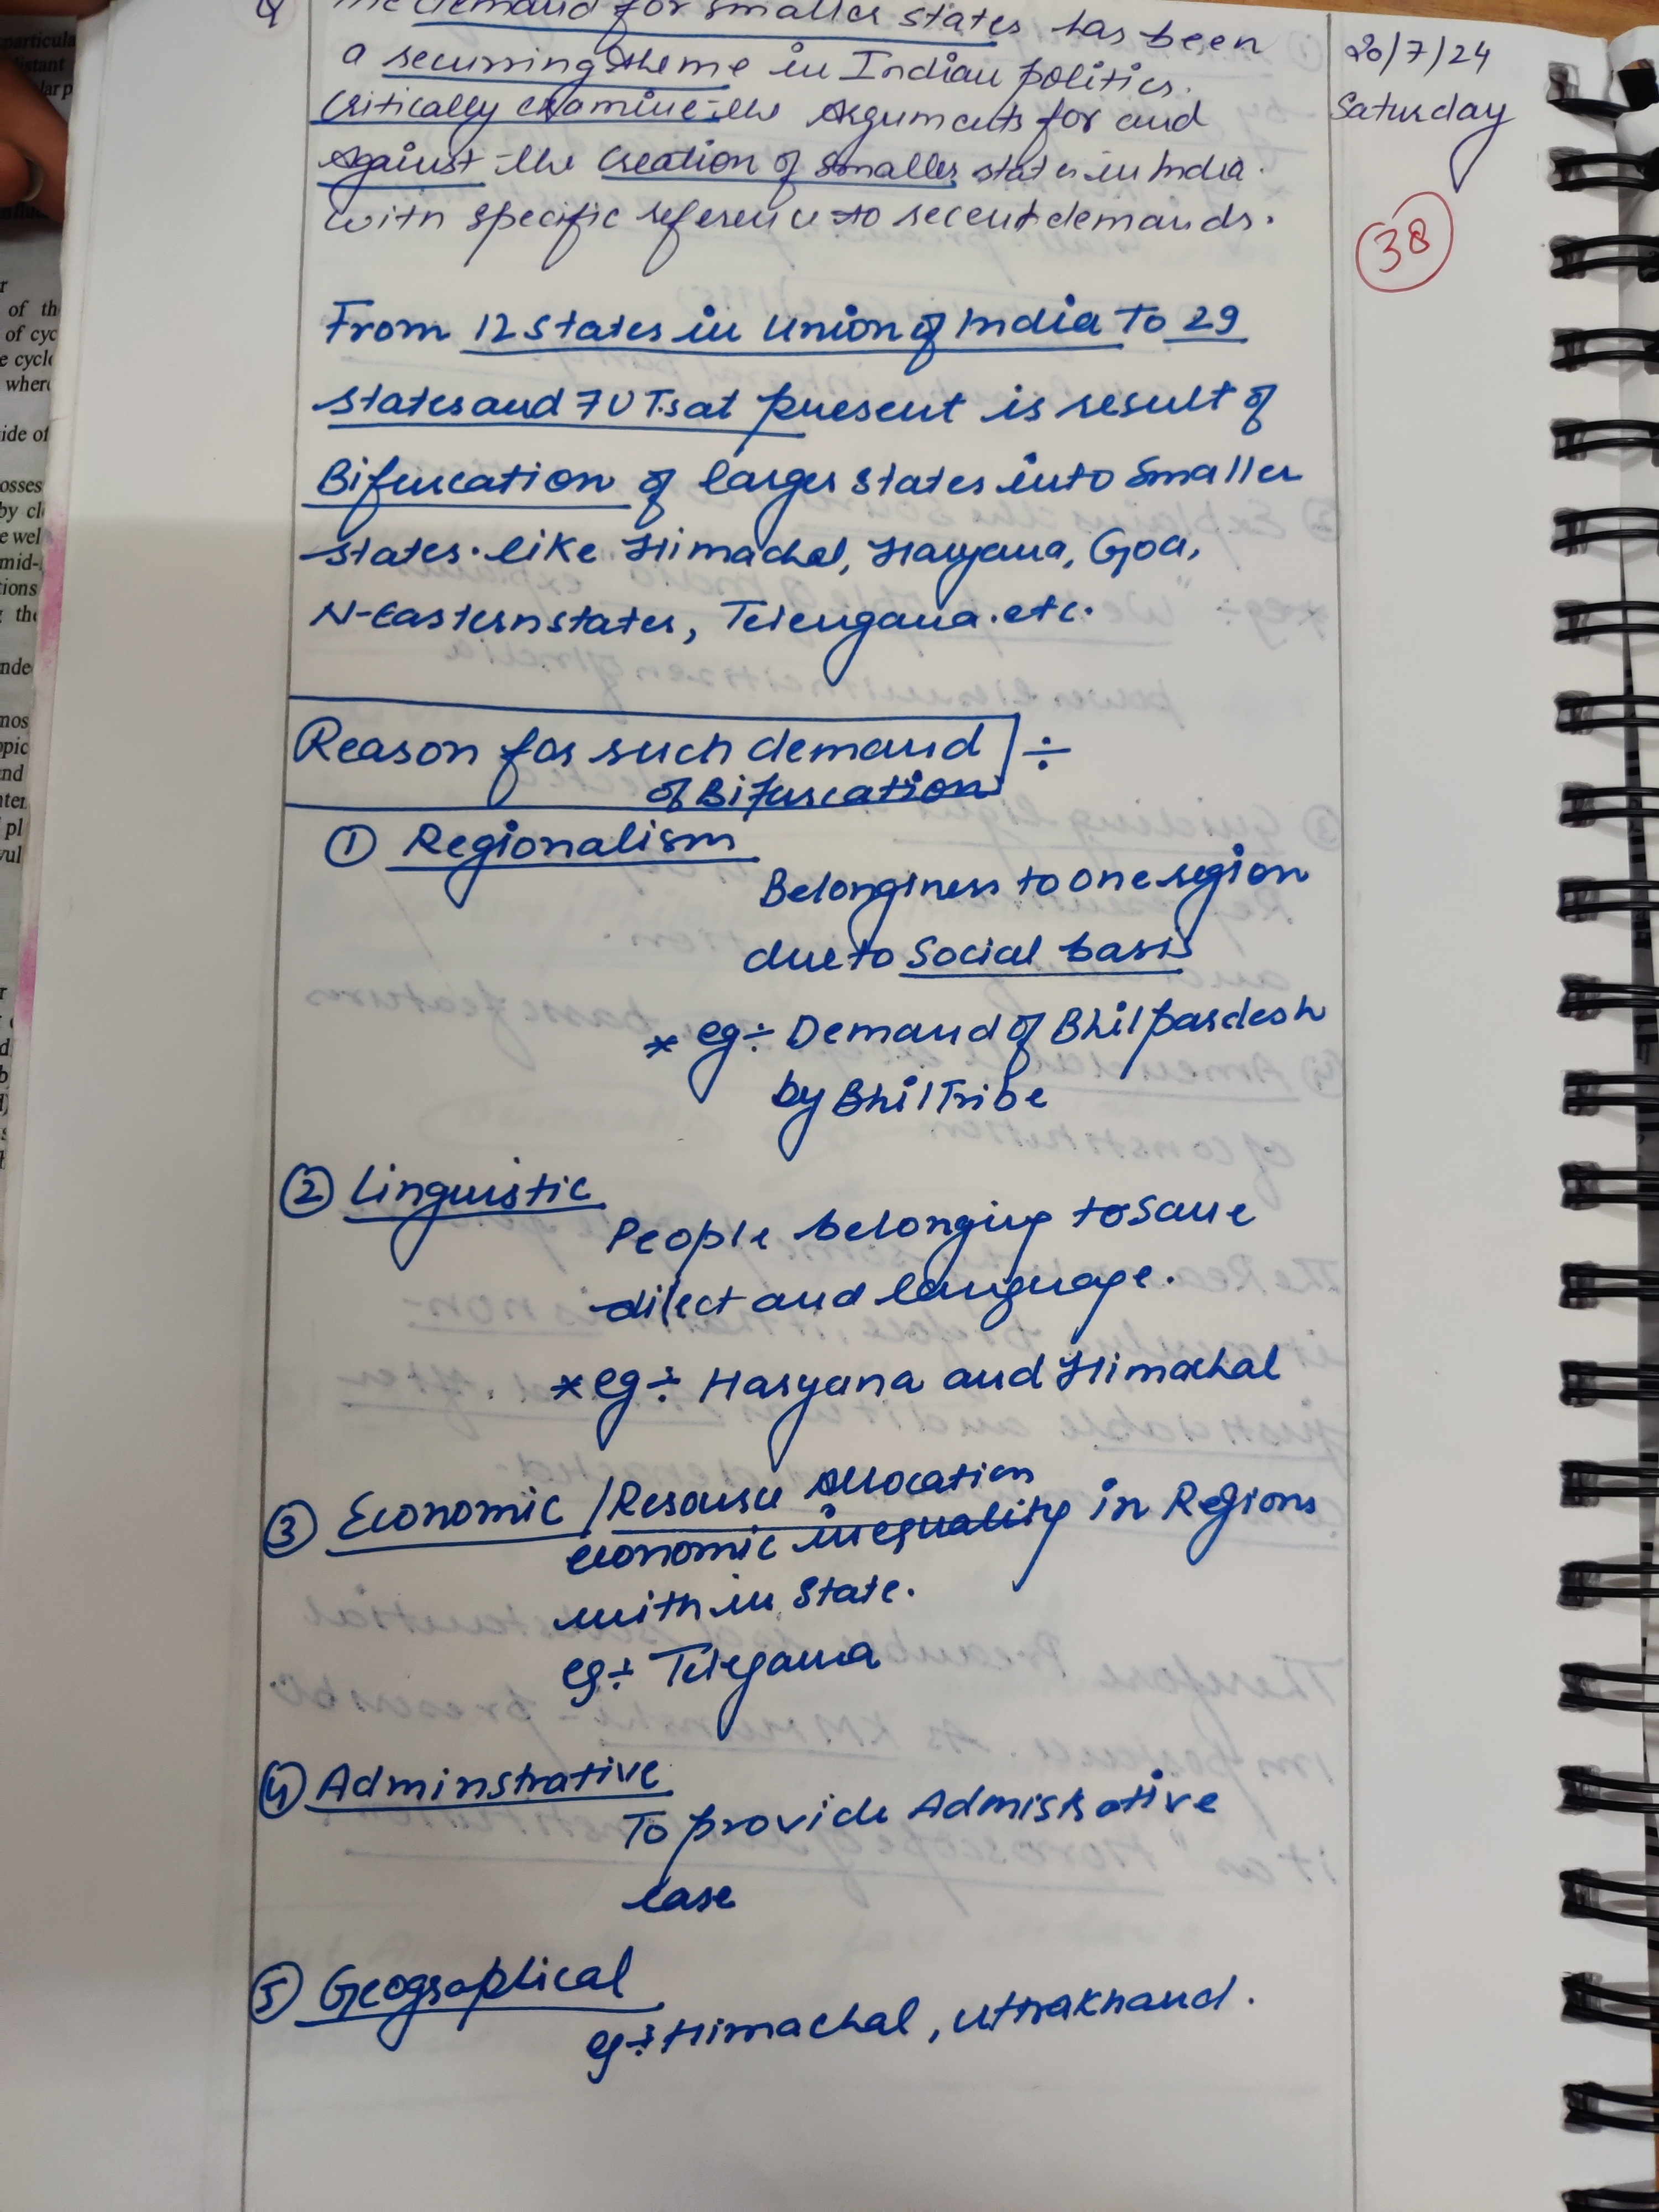 Q The demand for smaller states has been
a recurring theme in Indian politics.
Critically examine the Arguments for and
Against the creation of smaller states in India.
with specific reference to recent demands.
20/7/24
Saturday
38
From 12 states in Union of India To 29
states and 7 UTs at present is result of
Bifurcation of larger states into smaller
states. like Himachal, Haryana, Goa,
N-Eastern states, Telengana. etc.
Reason for such demand ÷
of Bifurcation
① Regionalism
Belonginess to one region
due to Social basis
* eg ÷ Demand of Bhil pardesh
by Bhil Tribe
② Linguistic
People belonging to same
dilect and language.
* eg ÷ Haryana and Himachal
③ Economic / Resource Allocation
economic inequality in Regions
with in State.
eg ÷ Telegana
④ Adminstrative
To provide Admistrative
ease
⑤ Geographical
eg ÷ Himachal, uttrakhand.
particula
distant
lar p
influe
r
of th
of cyc
e cycle
where
ide of
osses
by cl
e wel
mid-
tions
the
nde
mos
opic
nd
nter
pl
vul